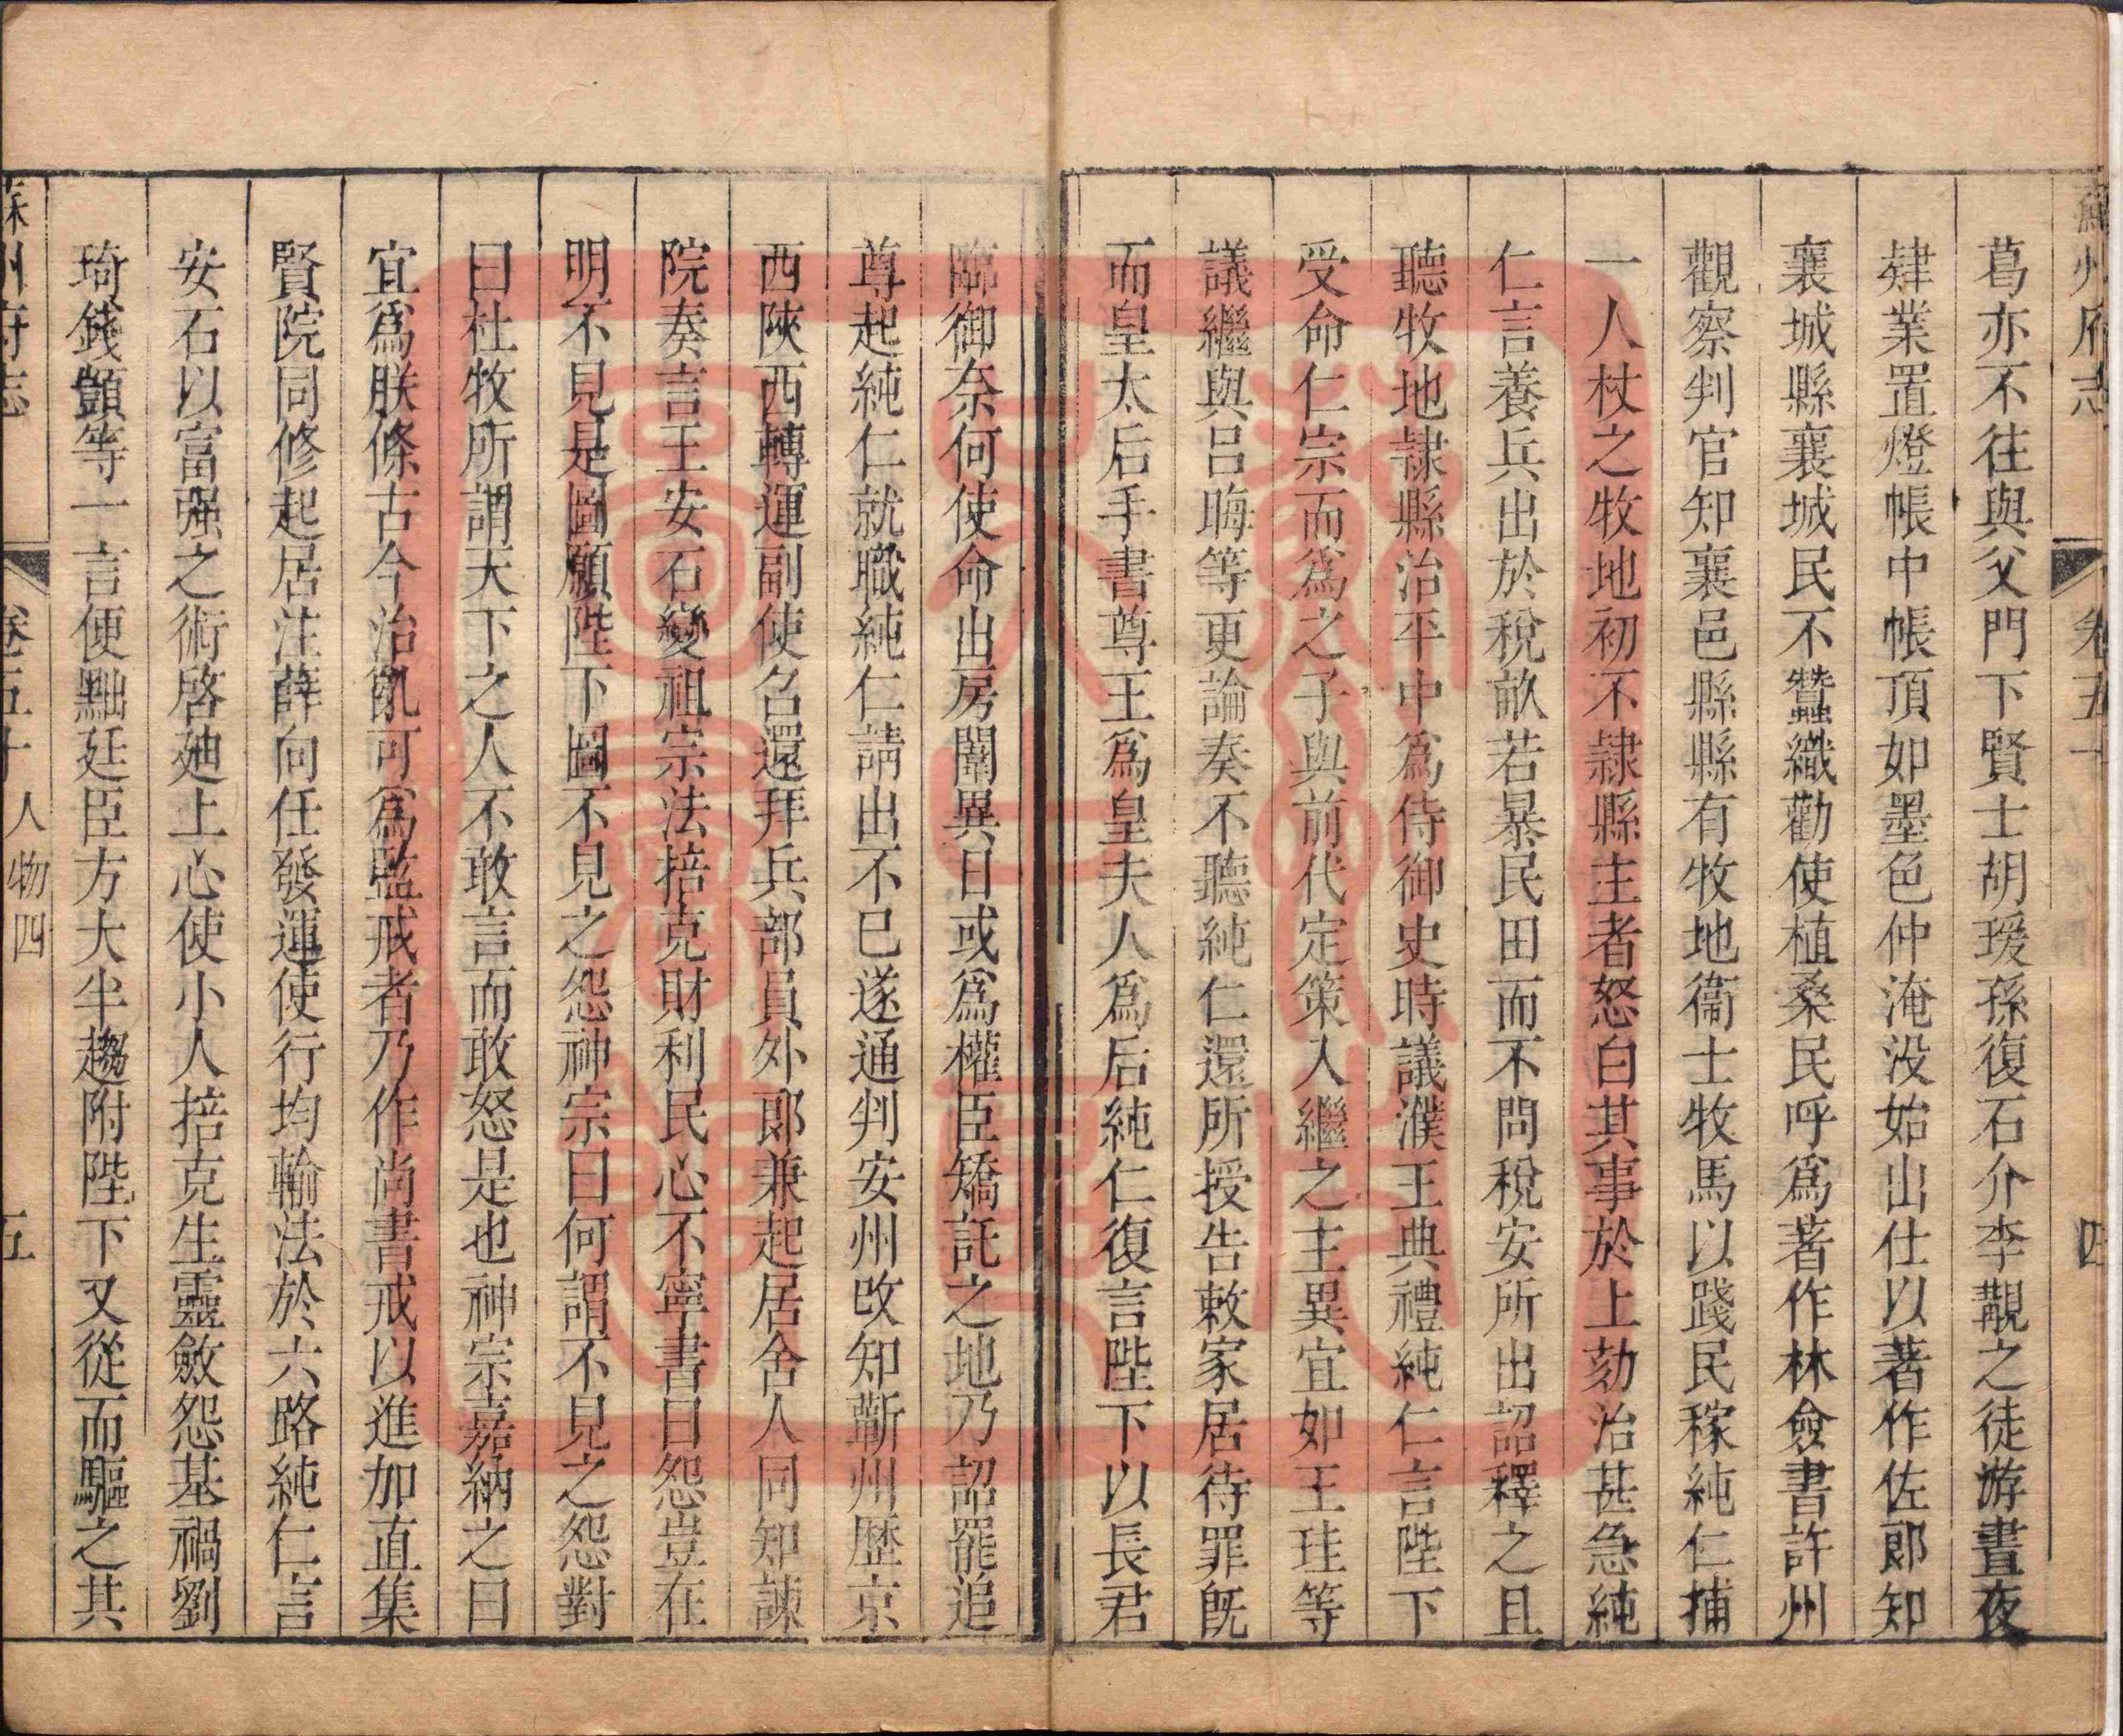 蘇州府志 卷五十 四
葛亦不往與父門下賢士胡瑗孫復石介李覯之徒游晝夜
肄業置燈帳中帳頂如墨色仲淹没始出仕以著作佐郎知
襄城縣襄城民不蠶織勸使植桑民呼爲著作林僉書許州
觀察判官知襄邑縣縣有牧地衞士牧馬以踐民稼純仁捕
一人杖之牧地初不隷縣主者怒白其事於上劾治甚急純
仁言養兵出於稅畝若暴民田而不問稅安所出詔釋之且
聽牧地隷縣治平中爲侍御史時議濮王典禮純仁言陛下
受命仁宗而爲之子與前代定策入繼之主異宜如王珪等
議繼與呂誨等更論奏不聽純仁還所授告敕家居待罪旣
而皇太后手書尊王爲皇夫人爲后純仁復言陛下以長君
臨御奈何使命出房闈異日或爲權臣矯託之地乃詔罷追
尊起純仁就職純仁請出不已遂通判安州改知蘄州歷京
西陝西轉運副使召還拜兵部員外郎兼起居舍人同知諫
院奏言王安石變祖宗法掊克財利民心不寧書曰怨豈在
明不見是圖願陛下圖不見之怨神宗曰何謂不見之怨對
曰杜牧所謂天下之人不敢言而敢怒是也神宗嘉納之曰
宜爲朕條古今治亂可爲監戒者乃作尚書戒以進加直集
賢院同修起居注薛向任發運使行均輸法於六路純仁言
安石以富强之術啓廸上心使小人掊克生靈斂怨基禍劉
琦錢顗等一言便黜廷臣方大半趨附陛下又從而驅之其
蘇州府志 卷五十 人物四 五